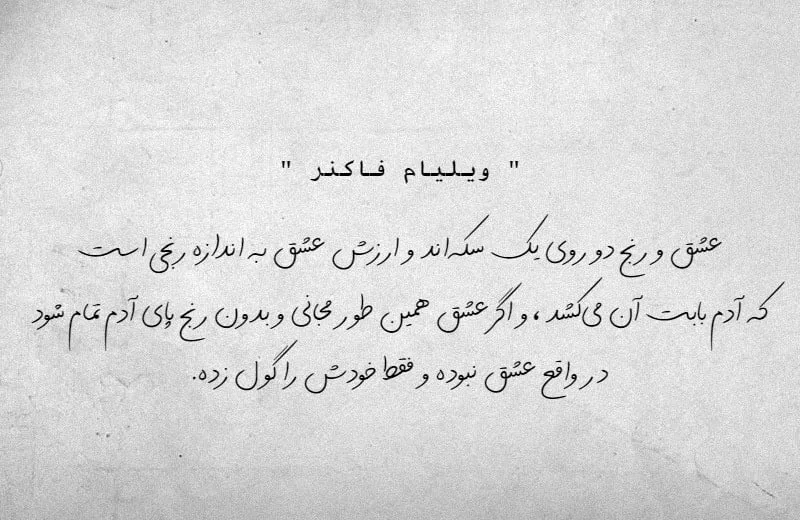 " ویلیام فاکنر "
عشق و رنج دو روی یک سکه‌اند و ارزش عشق به اندازه رنجی است
که آدم بابت آن می‌کشد ، و اگر عشق همین طور مجانی و بدون رنج پای آدم تمام شود
در واقع عشق نبوده و فقط خودش را گول زده.